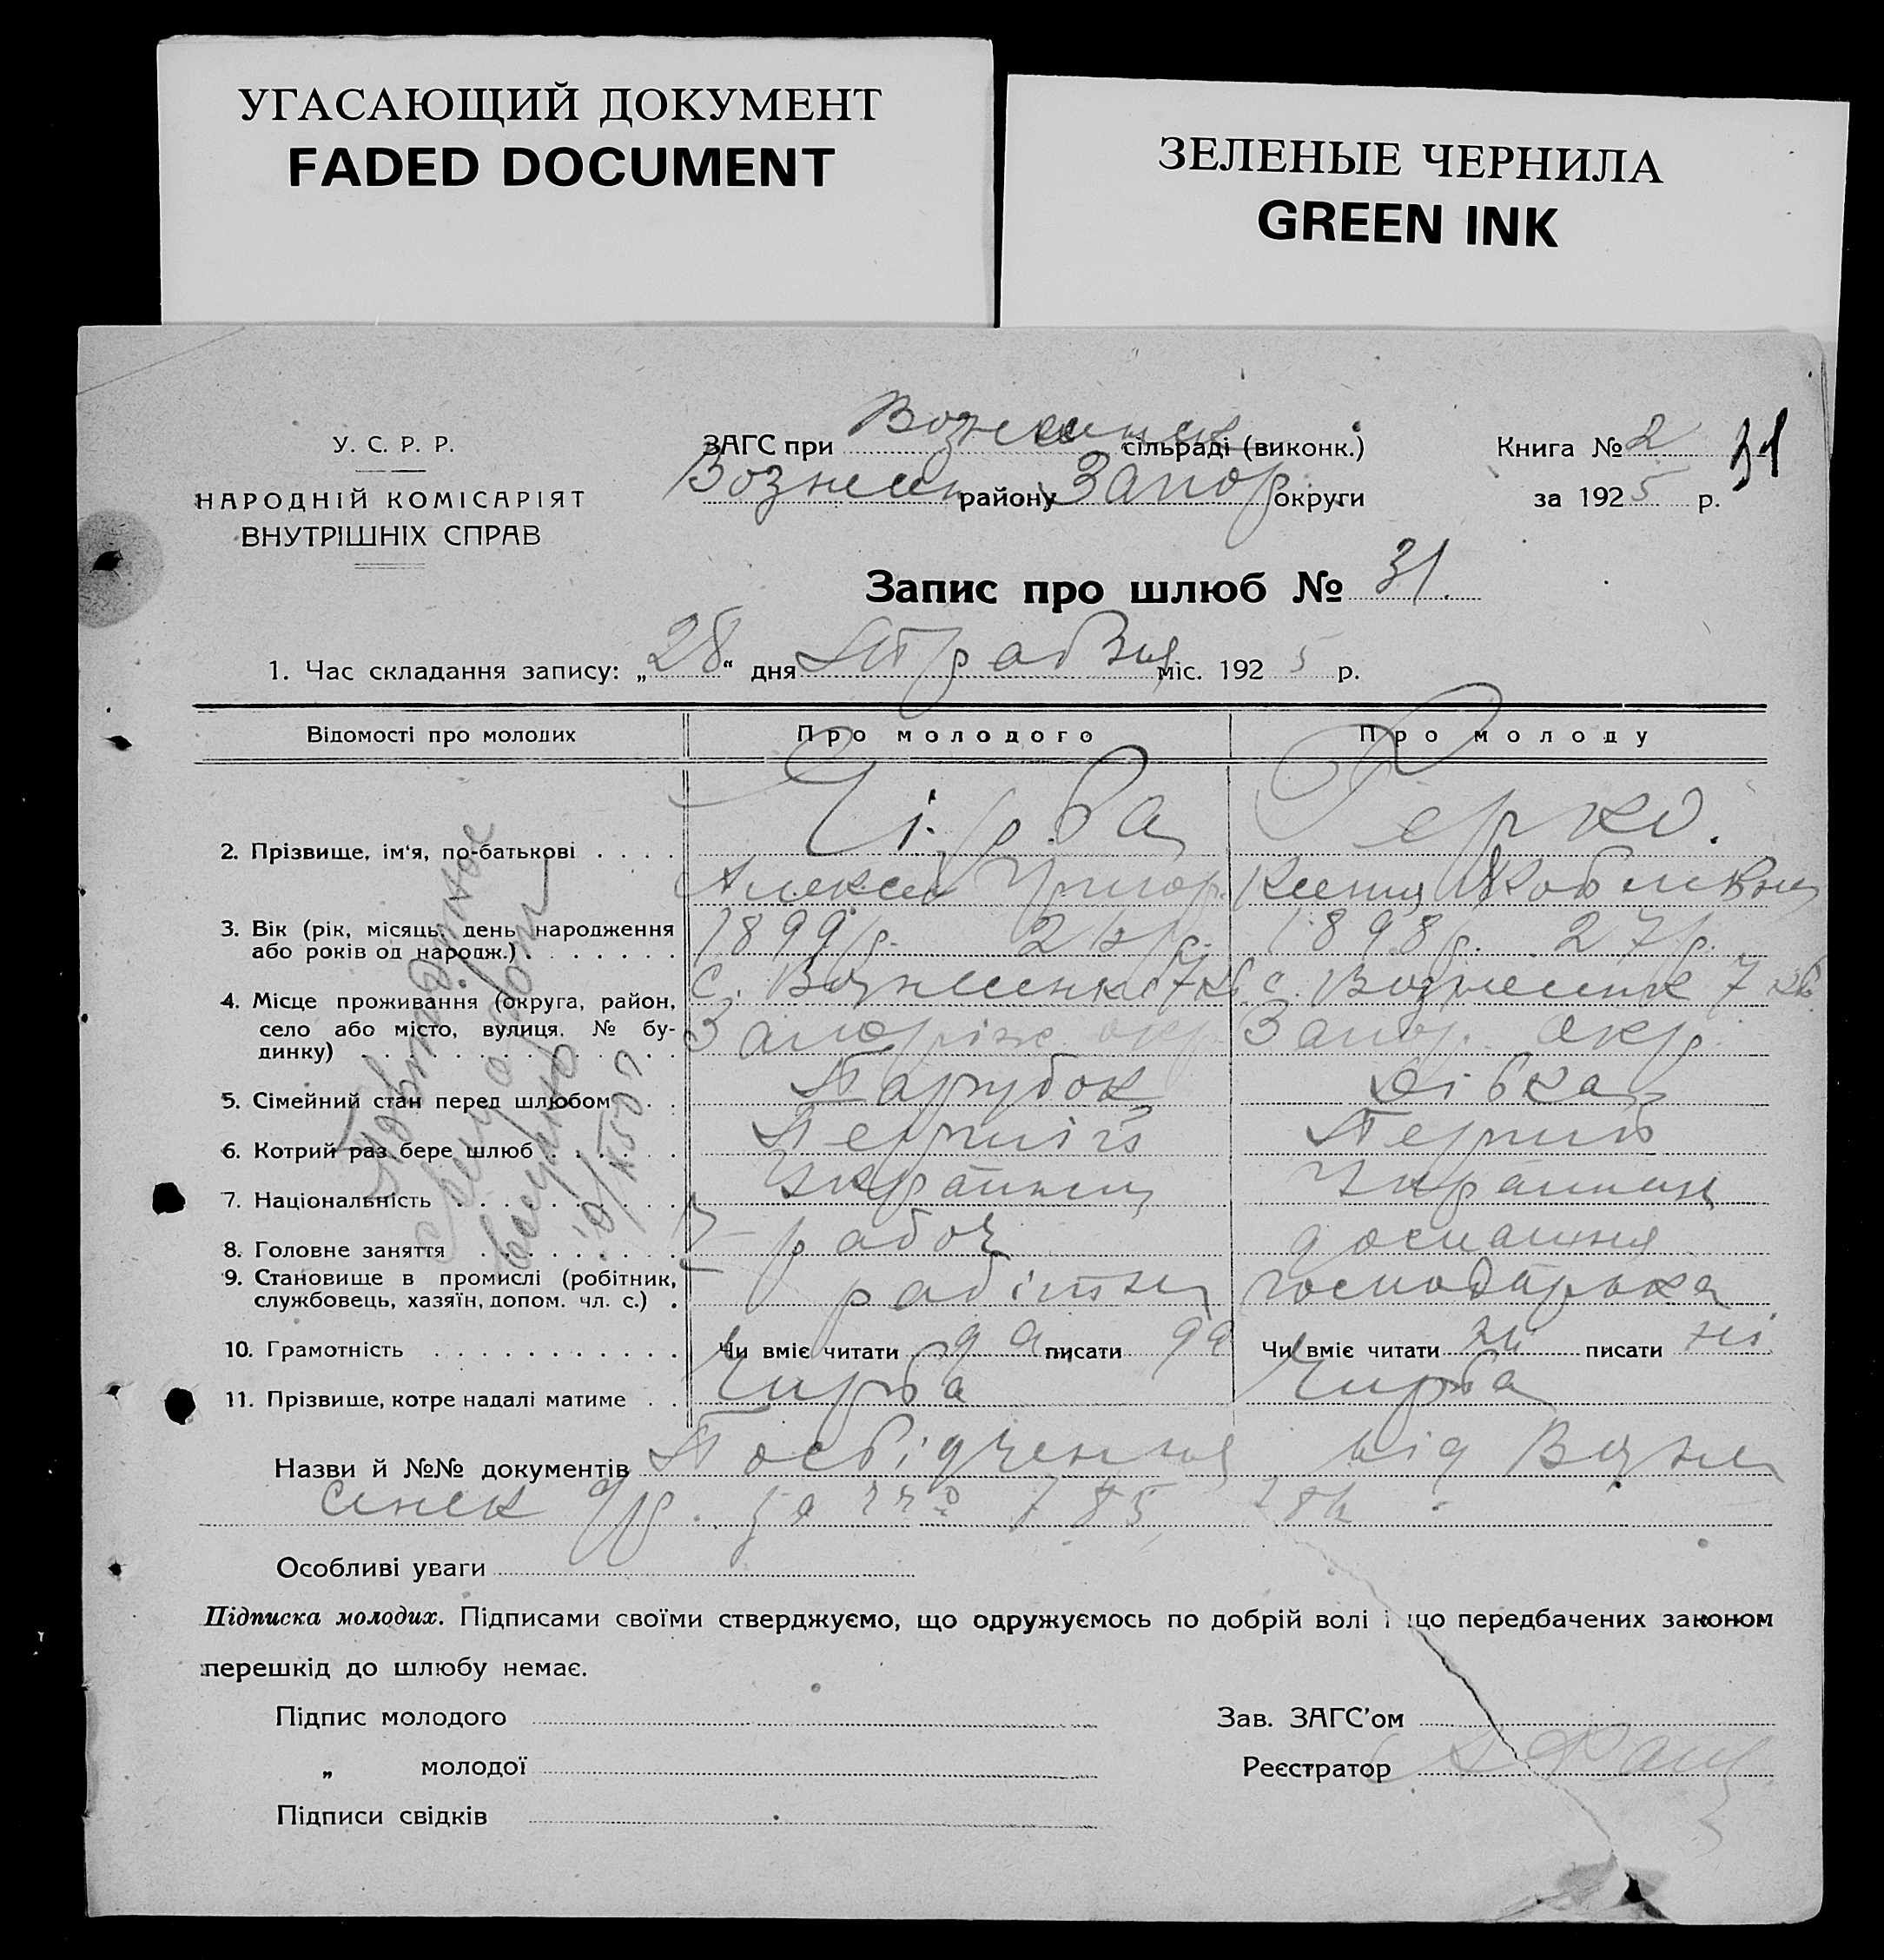 УГАСАЮЩИЙ ДОКУМЕНТ
FADED DOCUMENT
ЗЕЛЕНЫЕ ЧЕРНИЛА
GREEN INK
У. С. Р. Р.
НАРОДНІЙ КОМІСАРІЯТ
ВНУТРІШНІХ СПРАВ
ЗАГС при сільраді (виконк.)
Вознесен району Запор округи
Книга № 2 31
за 1925 р.
Запис про шлюб № 31.
1. Час складання запису: „28“ дня Травня міс. 1925 р.
Відомості про молодих Про молодого Про молоду
2. Прізвище, ім'я, по-батькові . . . . Чірва Герко.
Алексей Григор.
3. Вік (рік, місяць, день народження
або років од народж.) . . . . . . . 1899р. 26р. 1898р. 27р.
4. Місце проживання (округа, район,
село або місто, вулиця. № бу-
динку) . . . Запоріж. окр Запор. окр.
5. Сімейний стан перед шлюбом . . Парубок Дівка
6. Котрий раз бере шлюб . . . . . . Перший Перший
7. Національність . . . . . . . . Українець Українка
8. Головне заняття . . . . . . . . робоч домашня
9. Становище в промислі (робітник,
службовець, хазяїн, допом. чл. с.) . робітник господарька
10. Грамотність . . . . . . . . . . . Чи вміє читати да писати да Чи вміє читати ні писати ні
11. Прізвище, котре надалі матиме . . Чирва Чирва
Назви й №№ документів Посвідчення від Возне
сенск за 785
Особливі уваги
Підписка молодих. Підписами своїми стверджуємо, що одружуємось по добрій волі і що передбачених законом
перешкід до шлюбу немає.
Підпис молодого
„ молодої
Підписи свідків
Зав. ЗАГС'ом
Реєстратор